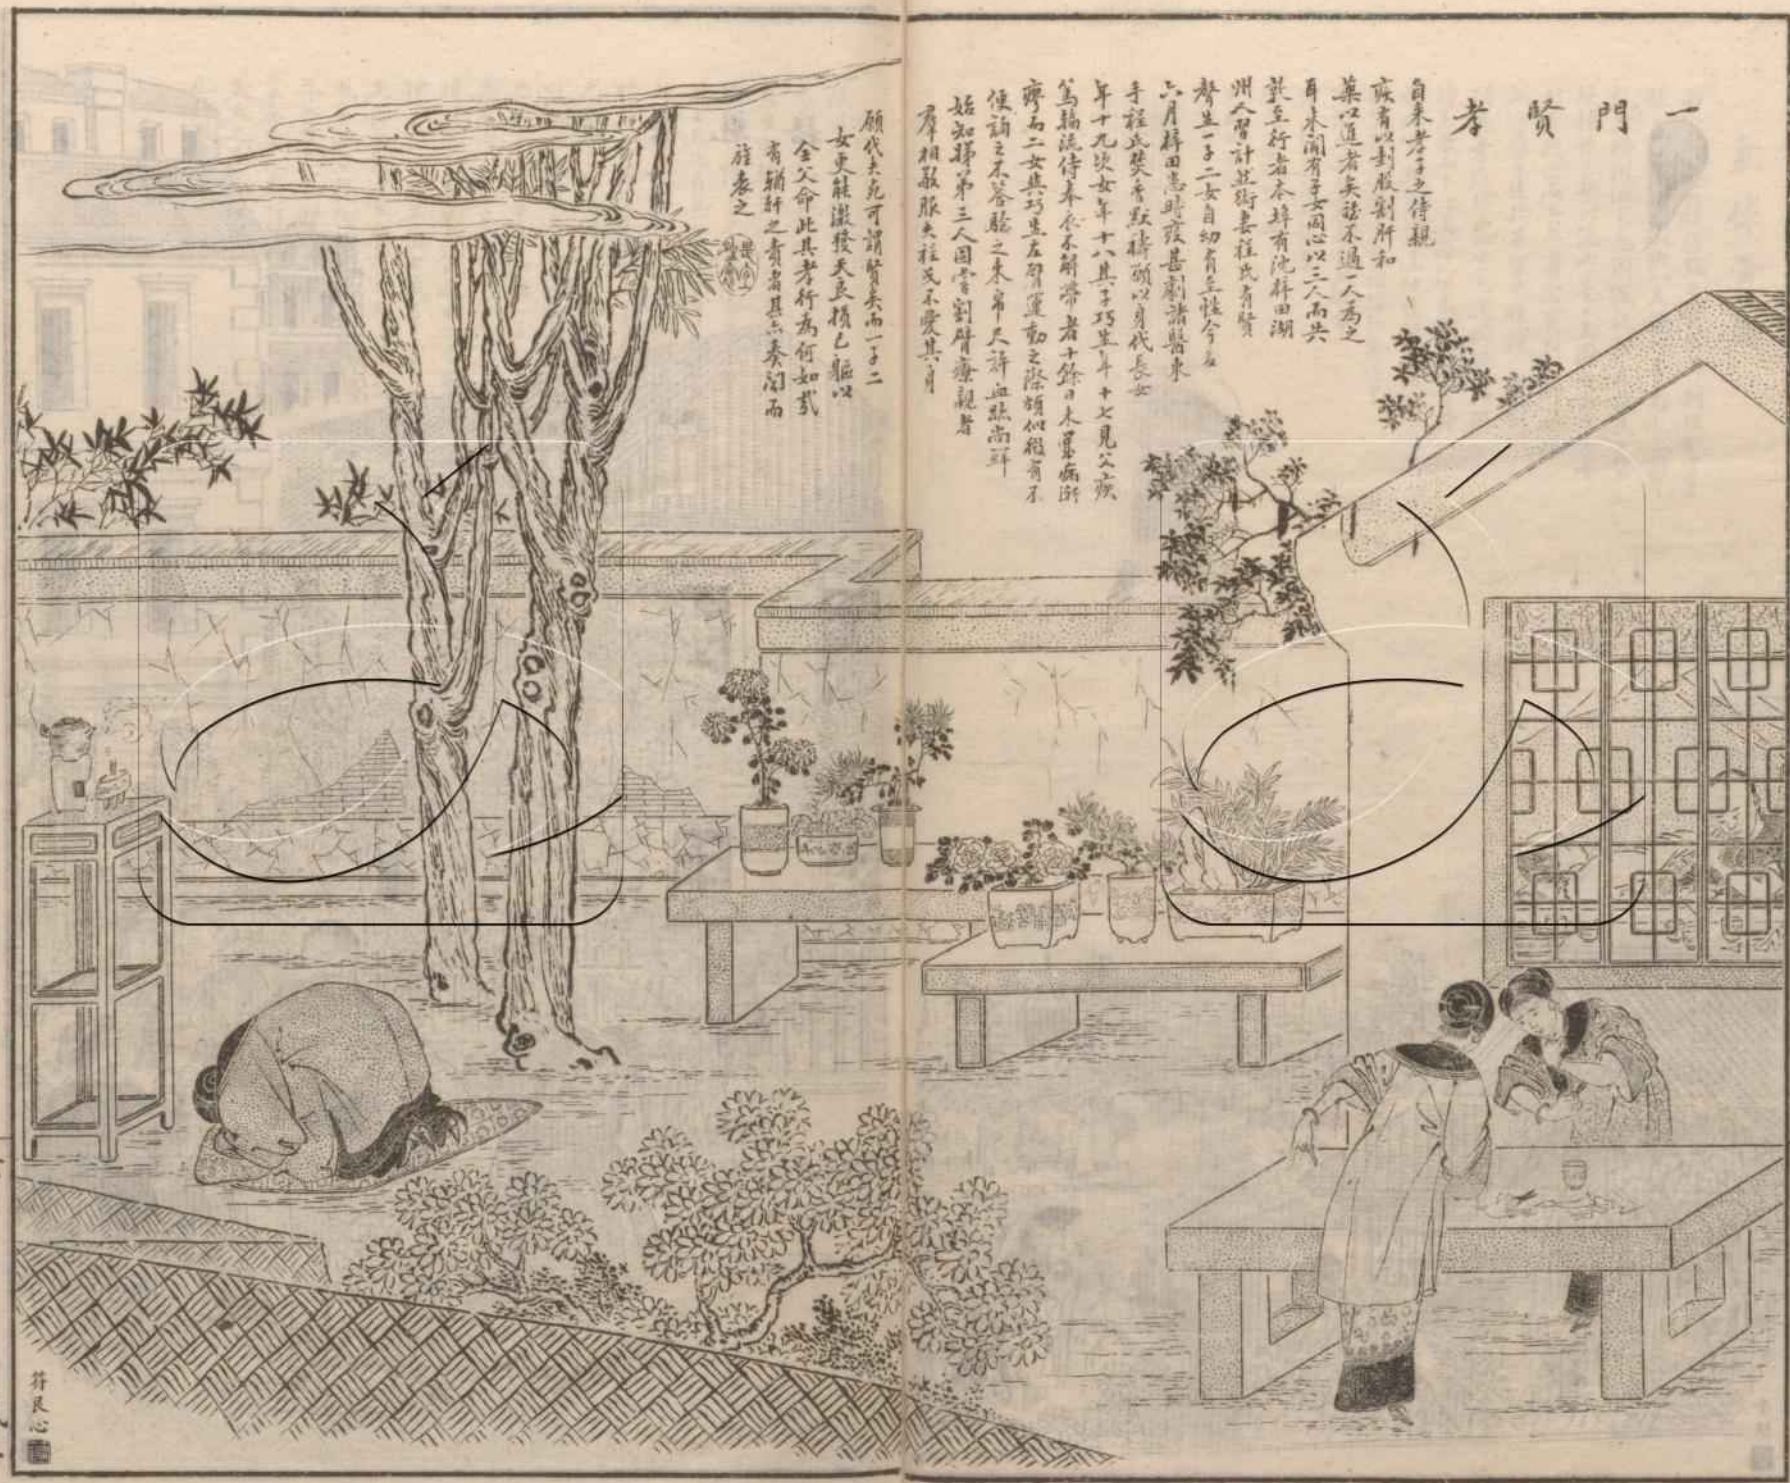 一門賢孝
自來孝子之侍親
疾者以刲股割肝和
藥以進者矣德不過一人為之
耳未聞有子女同心以三人而共
敦至行者本埠有沈梓田湖
州人習計然術妻程氏有賢
聲生一子二女自幼有至性今
六月梓田患時疫甚劇諸醫束
手程氏焚香默禱願以身代長女
年十九次女年十八其子巧生年十七見父疾
篤輪流侍奉衣不解帶者十餘日未幾病漸
瘳而二女與巧生左臂運動之際頗似稍有不
便詢之不答驗之束帛尺許血跡尚鮮
始知娣弟三人固嘗割臂療親者
羣相敬服夫程氏不愛其身
願代夫死可謂賢矣而一子二
女更能激發天良損己軀以
全父命此其孝行為何如哉
有輶軒之責者其亦奏聞而
旌表之
符艮心